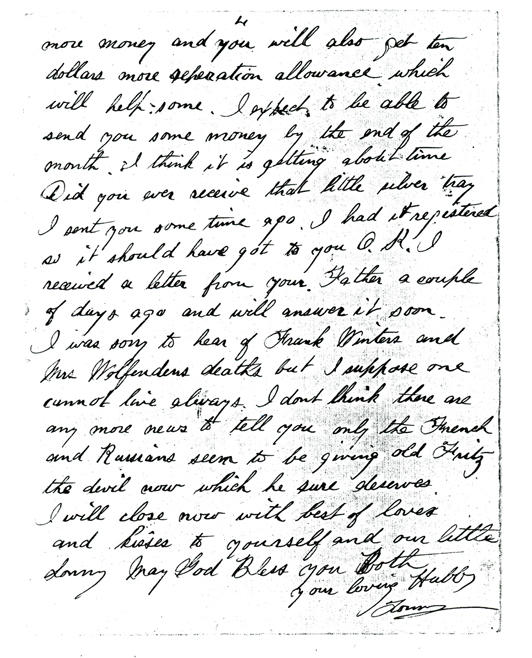 4
more money and you will also get ten
dollars more seperation allowance which
will help some. I expect to be able to
send you some money by the end of the
month. I think it is getting about time
Did you ever receive that little silver tray
I sent you some time ago. I had it registered
so it should have got to you O.K. I
received a letter from your Father a couple
of days ago and will answer it soon.
I was sorry to hear of Frank Winters and
Mrs Wolfendens deaths but I suppose one
cannot live always. I dont think there are
any more news to tell you only the French
and Russians seem to be giving old Fritz
the devil now which he sure deserves
I will close now with best of love
and kisses to yourself and our little
Lonny May God Bless you Both
your loving Hubby